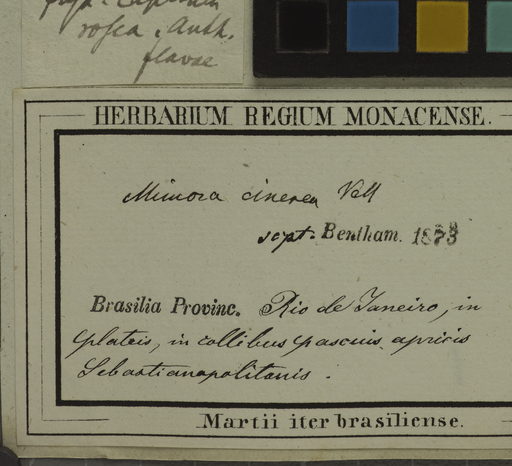 rosea. Anth.
flavae
HERBARIUM REGIUM MONACENSE.
Mimosa cinerea Vell
sept. Bentham. 1873
Brasilia Provinc. Rio de Janeiro, in
plateis, in collibus pascuis apricis
Sebastianopolitanis.
Martii iter brasiliense.